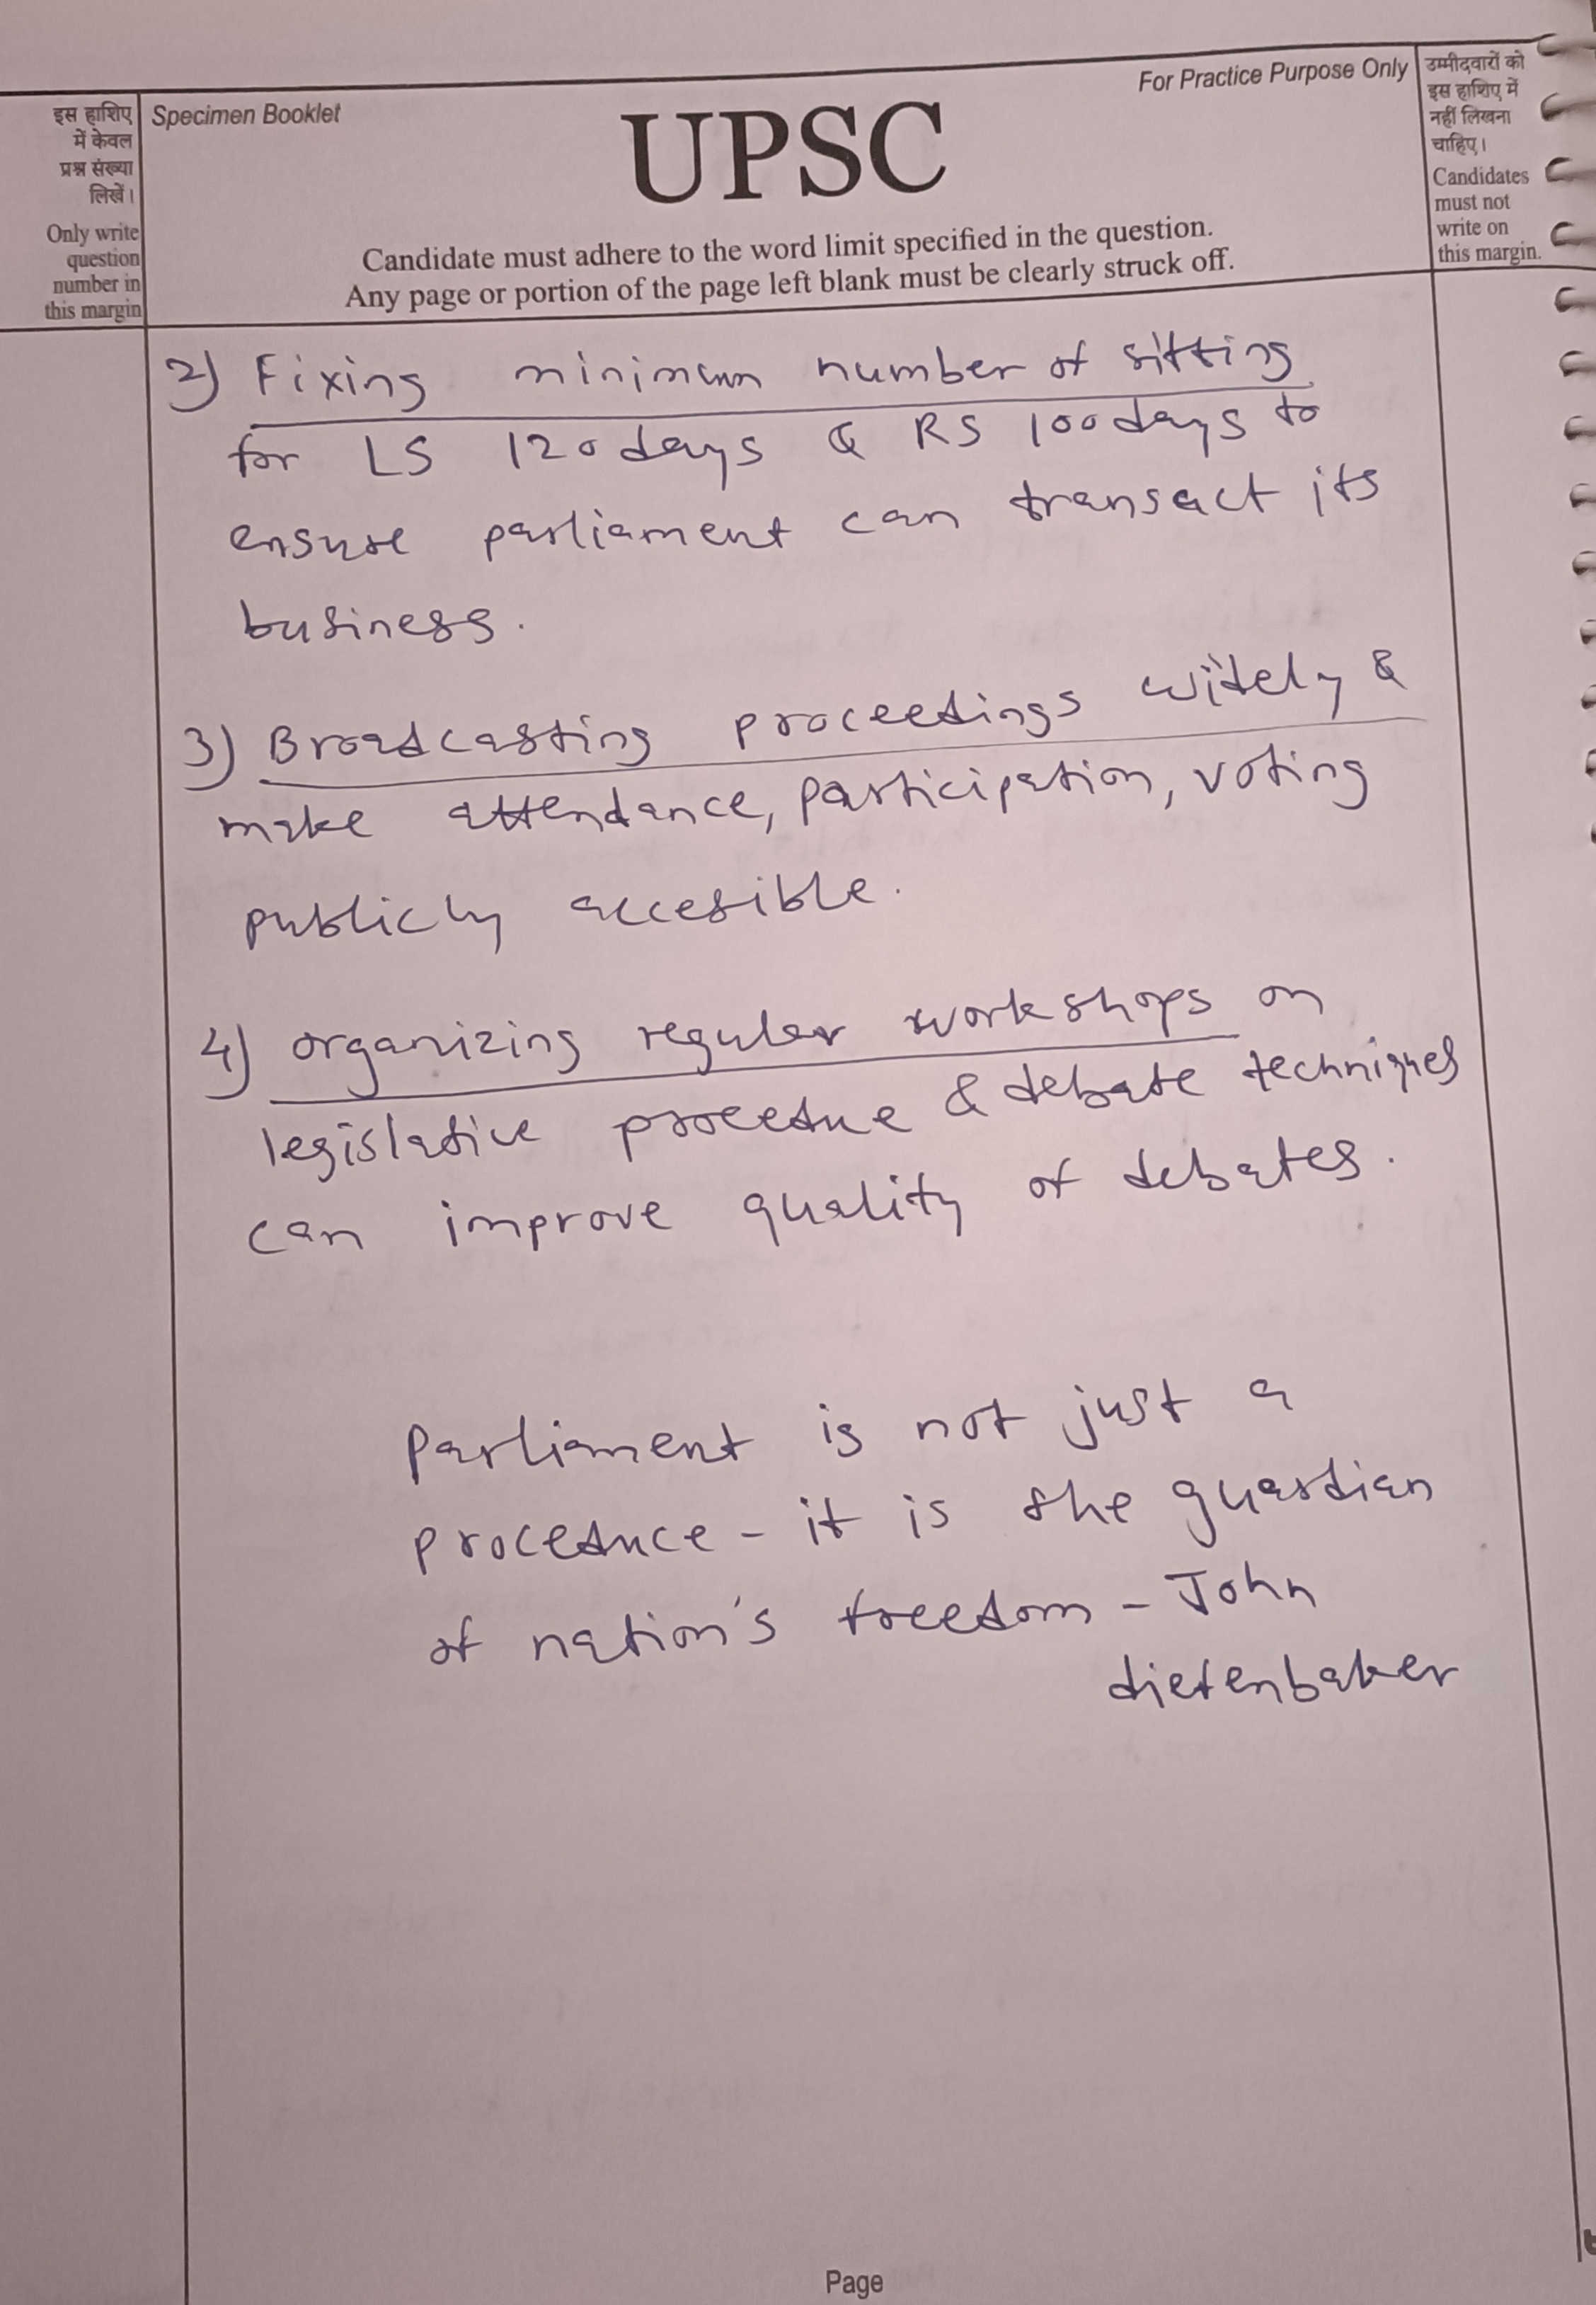 इस हाशिए
में केवल
प्रश्न संख्या
लिखें।
Only write
question
number in
this margin
Specimen Booklet
UPSC
For Practice Purpose Only
Candidate must adhere to the word limit specified in the question.
Any page or portion of the page left blank must be clearly struck off.
उम्मीदवारों को
इस हाशिए में
नहीं लिखना
चाहिए।
Candidates
must not
write on
this margin.
2) Fixing minimum number of sitting
for LS 120 days & RS 100 days to
ensure parliament can transact its
business.
3) Broadcasting proceedings widely &
make attendance, participation, voting
publicly accesible.
4) organizing regular workshops on
legislative procedue & debate techniques
can improve quality of debates.
Parliament is not just a
procedure - it is the guardian
of nation's freedom - John
diefenbaker
Page